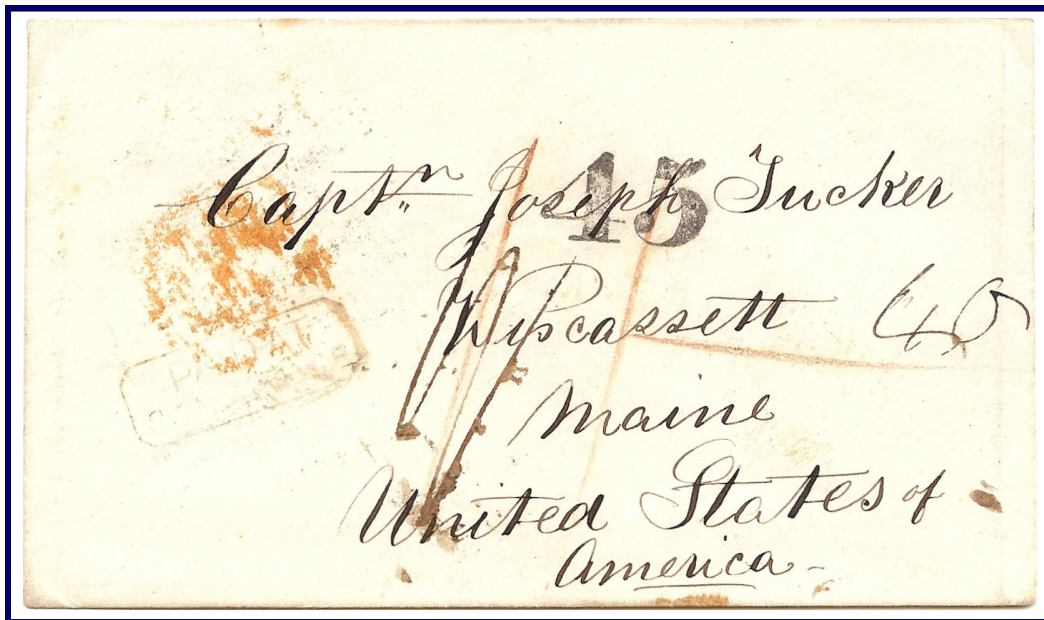 Captn Joseph Tucker
45
Wiscassett 40
Maine
United States of
America